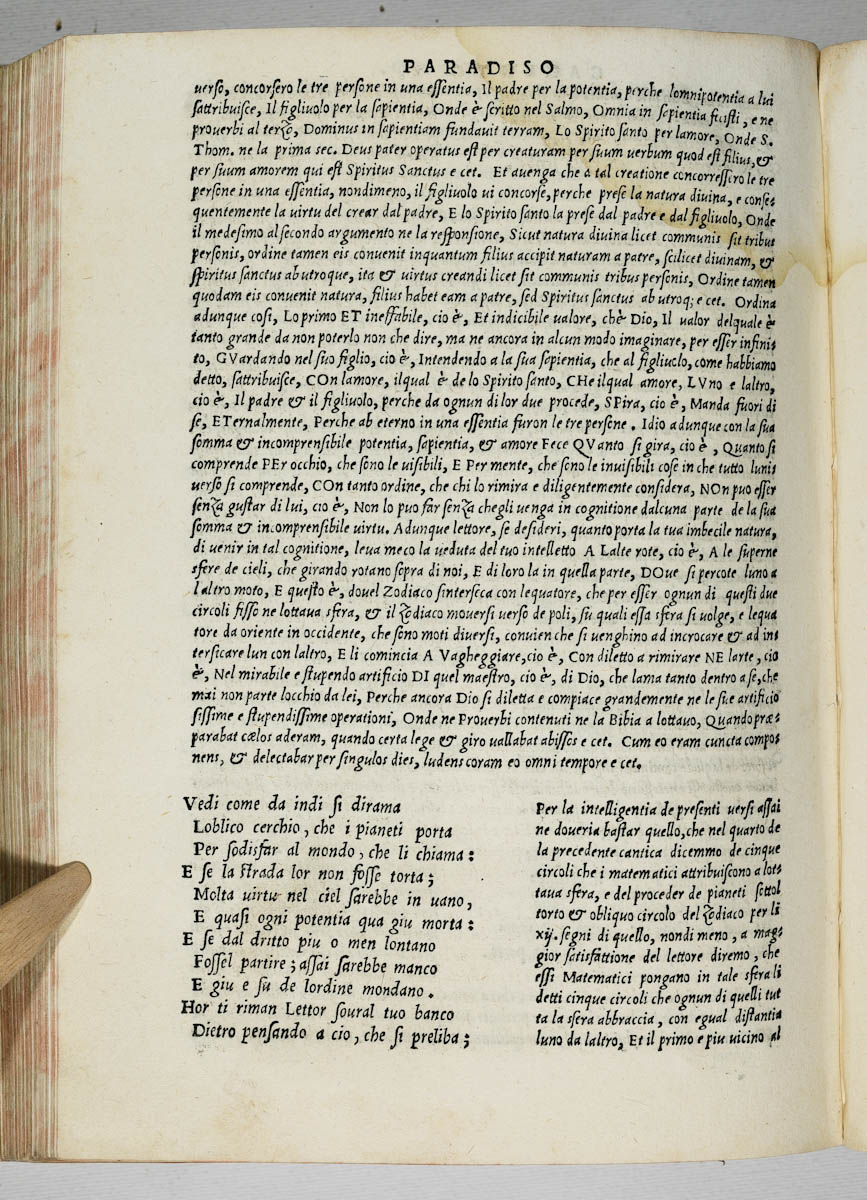 PARADISO
uerso, concorsero le tre persone in una essentia, Il padre per la potentia, perche lomnipotentia a lui
sattribuisce, Il figliuolo per la sapientia, Onde è scritto nel Salmo, Omnia in sapientia fecisti, e ne
prouerbi al terzo, Dominus in sapientiam fundauit terram, Lo Spirito santo per lamore, Onde S.
Thom. ne la prima sec. Deus pater operatus est per creaturam per suum uerbum quod est filius, &
per suum amorem qui est Spiritus Sanctus e cet. Et auenga che a tal creatione concorressero le tre
persone in una essentia, nondimeno, il figliuolo ui concorse, perche prese la natura diuina, e conse-
quentemente la uirtu del crear dal padre, E lo Spirito santo la prese dal padre e dal figliuolo, Onde
il medesimo al secondo argumento ne la responsione, Sicut natura diuina licet communis sit tribus
personis, ordine tamen eis conuenit inquantum filius accipit naturam a patre, scilicet diuinam, &
spiritus sanctus ab utroque, ita & uirtus creandi licet sit communis tribus personis, Ordine tamen
quodam eis conuenit natura, filius habet eam a patre, sed Spiritus sanctus ab utroq; e cet. Ordina
adunque cosi, Lo primo ET ineffabile, cio è, Et indicibile ualore, chè Dio, Il ualor delquale è
tanto grande da non poterlo non che dire, ma ne ancora in alcun modo imaginare, per esser infini-
to, GVardando nel suo figlio, cio è, Intendendo a la sua sapientia, che al figliuolo, come habbiamo
detto, sattribuisce, COn lamore, ilqual è de lo Spirito santo, CHe ilqual amore, LVno e laltro,
cio è, Il padre & il figliuolo, perche da ognun di lor due procede, SPira, cio è, Manda fuori di
se, ETernalmente, Perche ab eterno in una essentia furon le tre persone. Idio adunque con la sua
somma & incomprensibile potentia, sapientia, & amore Fece QVanto si gira, cio è, Quanto si
comprende PEr occhio, che sono le uisibili, E Per mente, che sono le inuisibili cose in che tutto luni-
uerso si comprende, COn tanto ordine, che chi lo rimira e diligentemente considera, NOn puo esser
senza gustar di lui, cio è, Non lo puo far senza chegli uenga in cognitione dalcuna parte de la sua
somma & incomprensibile uirtu. Adunque lettore, se desideri, quanto porta la tua imbecile natura,
di uenir in tal cognitione, leua meco la ueduta del tuo intelletto A Lalte rote, cio è, A le superne
sfere de cieli, che girando rotano sopra di noi, E di loro la in quella parte, DOue si percote luno a
laltro moto, E questo è, douel Zodiaco sinterseca con lequatore, che per esser ognun di questi due
circoli fisso ne lottaua sfera, & il zodiaco mouersi uerso de poli, su quali essa sfera si uolge, e lequa
tore da oriente in occidente, che sono moti diuersi, conuien che si uenghino ad incrocare & ad in-
tersicare lun con laltro, E li comincia A Vagheggiare, cio è, Con diletto a rimirare NE larte, cio
è, Nel mirabile e stupendo artificio DI quel maestro, cio è, di Dio, che lama tanto dentro a se, che
mai non parte locchio da lei, Perche ancora Dio si diletta e compiace grandemente ne le sue artificio
sissime e stupendissime operationi, Onde ne Prouerbi contenuti ne la Bibia a lottauo, Quando præ-
parabat cælos aderam, quando certa lege & giro uallabat abissos e cet. Cum eo eram cuncta compo-
nens, & delectabar per singulos dies, ludens coram eo omni tempore e cet.
Vedi come da indi si dirama
Loblico cerchio, che i pianeti porta
Per sodisfar al mondo, che li chiama:
E se la strada lor non fosse torta;
Molta uirtu nel ciel sarebbe in uano,
E quasi ogni potentia qua giu morta:
E se dal dritto piu o men lontano
Fossel partire; assai sarebbe manco
E giu e su de lordine mondano.
Hor ti riman Lettor soural tuo banco
Dietro pensando a cio, che si preliba;
Per la intelligentia de presenti uersi assai
ne doueria bastar quello, che nel quarto de
la precedente cantica dicemmo de cinque
circoli che i matematici attribuiscono a lot-
taua sfera, e del proceder de pianeti sottol
torto & obliquo circolo del zodiaco per li
xij. segni di quello, nondimeno, a mag-
gior satisfattione del lettore diremo, che
essi Matematici pongano in tale sfera li
detti cinque circoli che ognun di quelli tut
ta la sfera abbraccia, con egual distantia
luno da laltro, Et il primo e piu uicino al